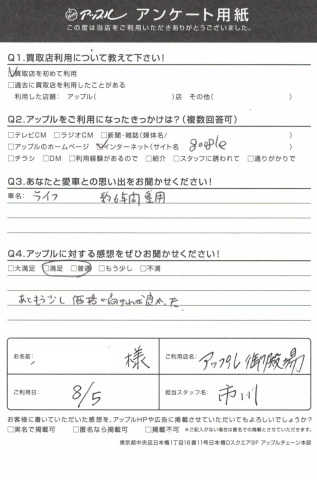 アップル アンケート用紙
この度は当店をご利用いただきありがとうございました。
Q1.買取店利用について教えて下さい!
☑買取店を初めて利用
□過去に買取店を利用したことがある
利用した店舗: アップル( )店 その他( )
Q2.アップルをご利用になったきっかけは?(複数回答可)
□テレビCM □ラジオCM □新聞・雑誌(媒体名/ )
□アップルのホームページ ☑インターネット(サイト名 google )
□チラシ □DM □利用経験があるので □紹介 □スタッフに誘われて □通りがかりで
Q3.あなたと愛車との思い出をお聞かせください!
車名: ライフ 約6年間愛用
Q4.アップルに対する感想をぜひお聞かせください!
□大満足 □満足 □普通 □もう少し □不満
あともう少し価格が
良かった
お名前: 様
ご利用店名: アップル御殿場
ご利用日: 8/5
担当スタッフ名: 市川
お客様に書いていただいた感想を、アップルHPや広告に掲載させていただいてもよろしいでしょうか?
□実名で掲載可 □匿名なら掲載可 □掲載不可 ※ご記入がない場合は匿名での掲載とさせていただきます。
東京都中央区日本橋1丁目16番11号日本橋Dスクエア9F アップルチェーン本部